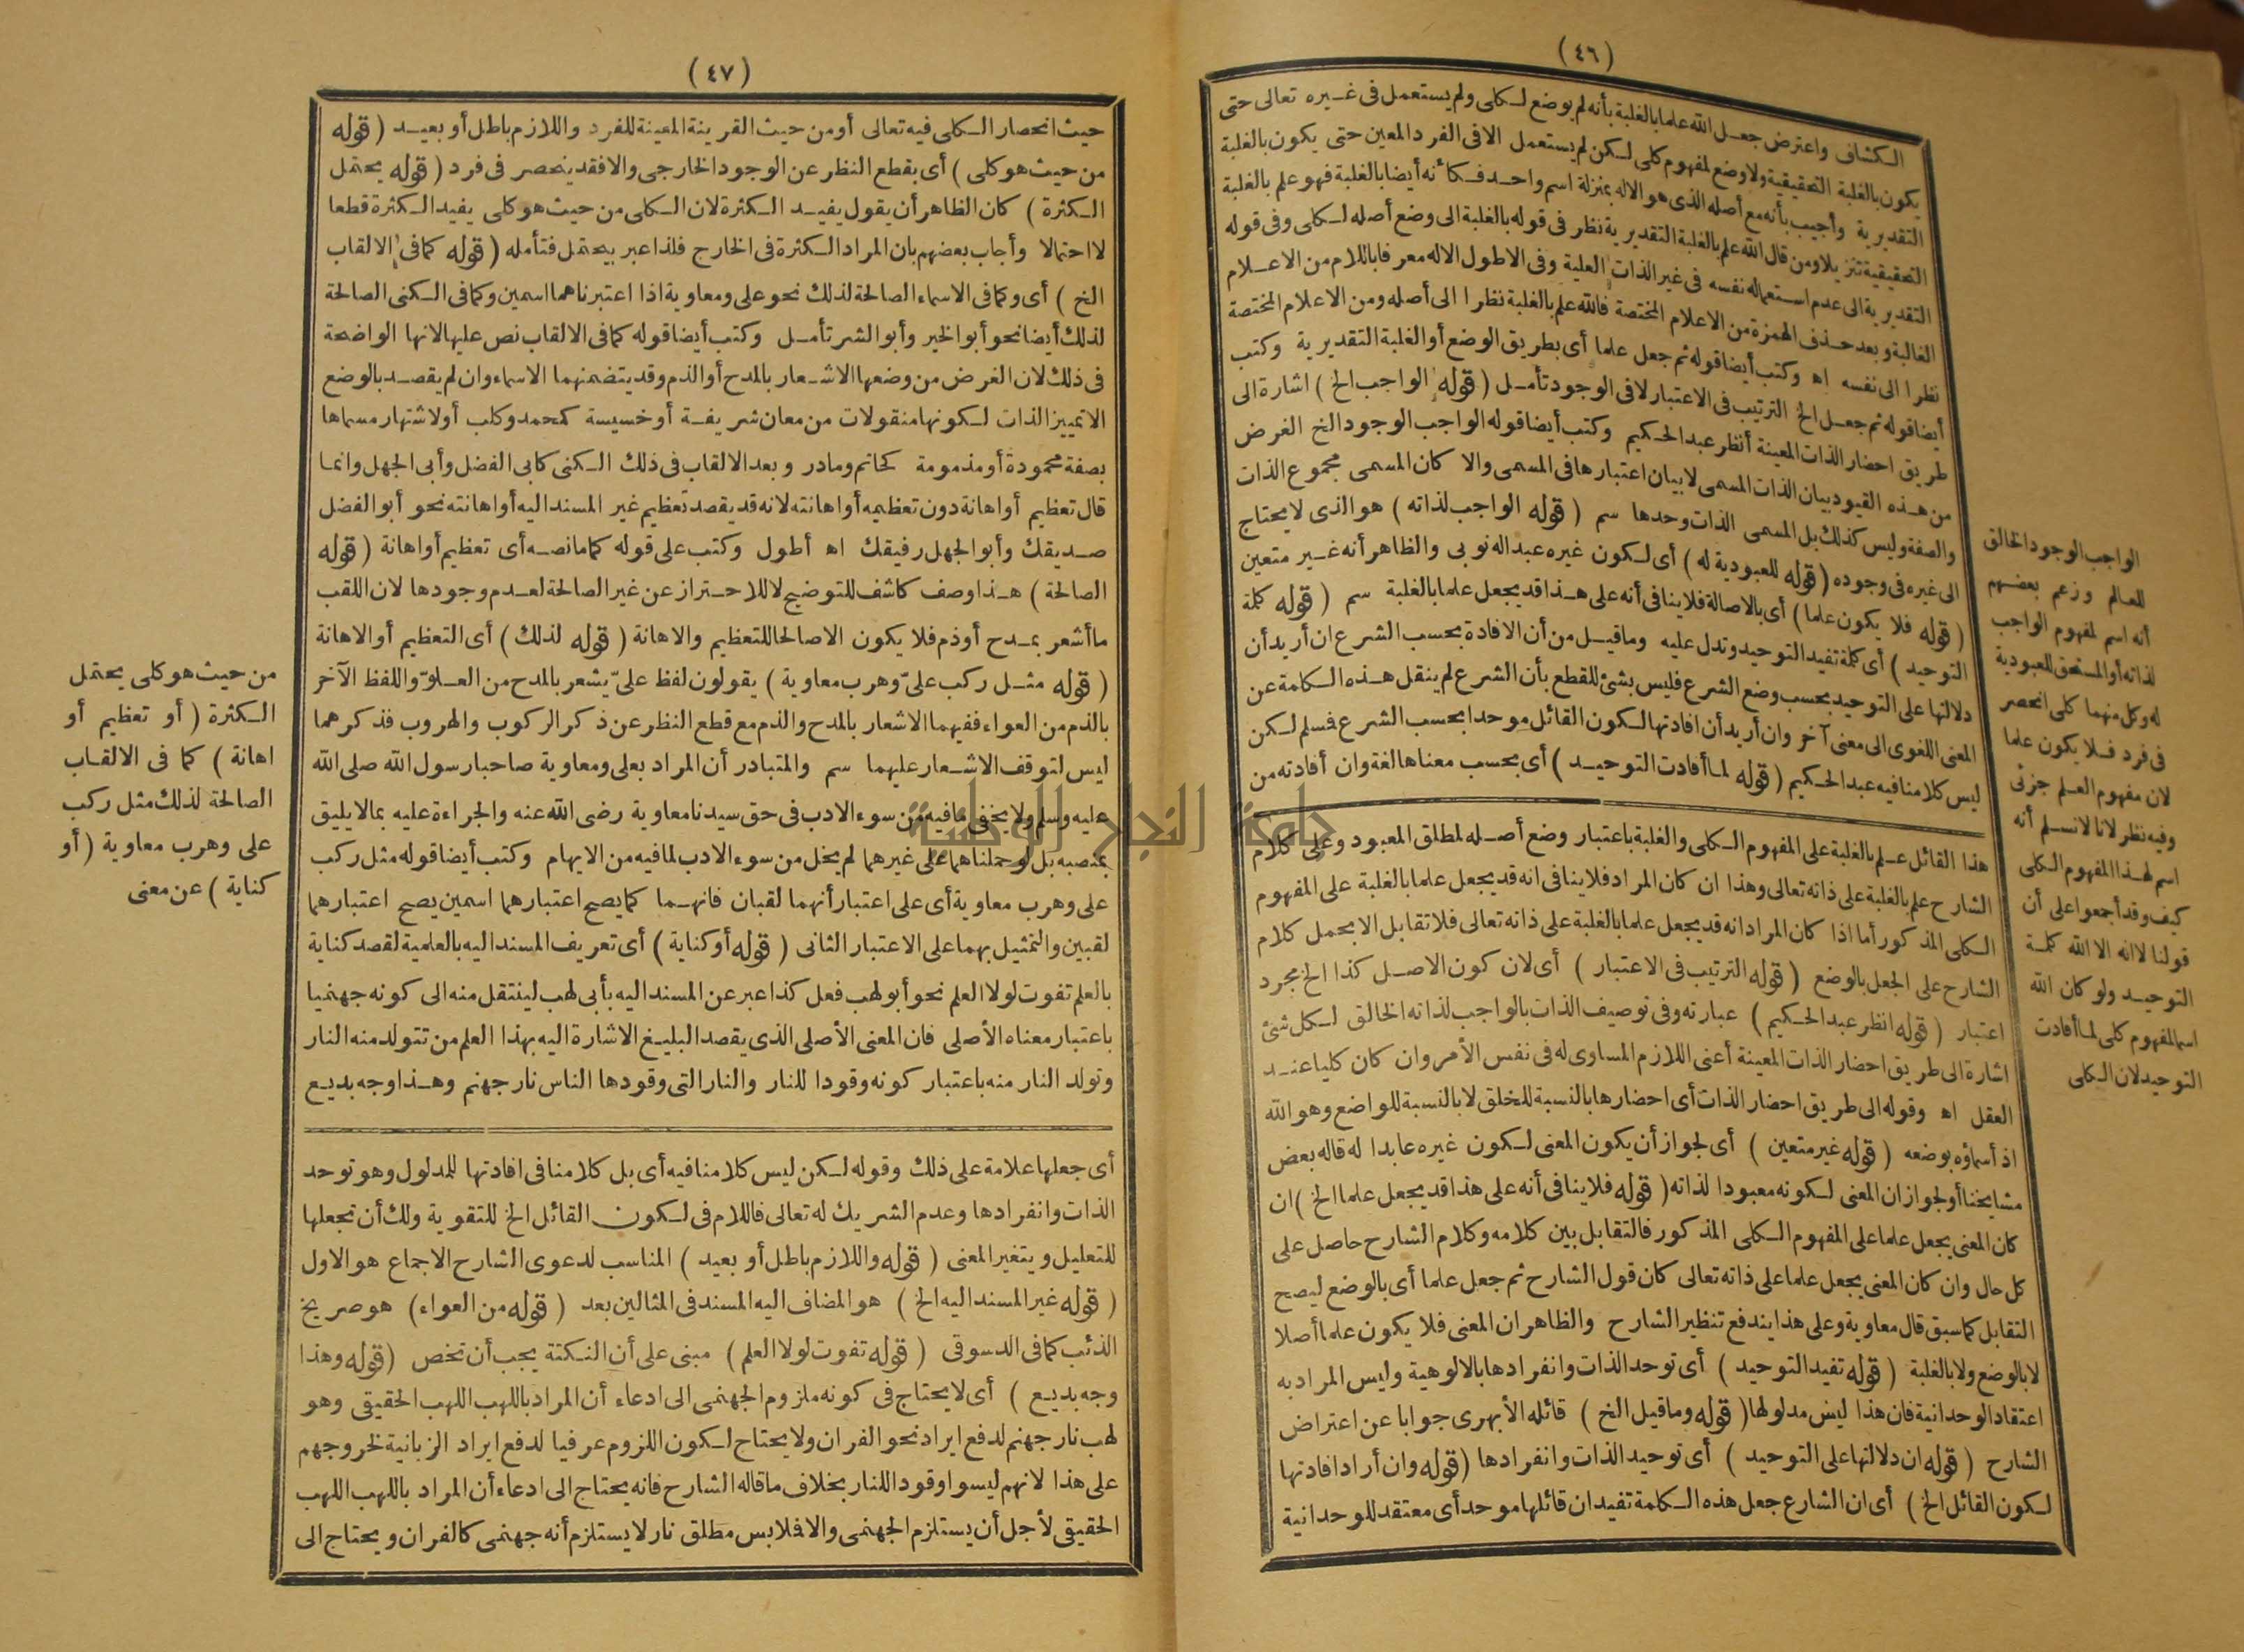 (٤٦)
الكشاف واعترض جعل الله علما بالغلبة بأنه لم يوضع لكلى ولم يستعمل فى غيره تعالى حتى
يكون بالغلبة التحقيقية ولا وضع لمفهوم كلى لكن لم يستعمل الا فى الفرد المعين حتى يكون بالغلبة
التقديرية وأجيب بأنه مع أصله الذى هو الاله بمنزلة اسم واحد فكأنه أيضا بالغلبة فهو علم بالغلبة
التحقيقية تنزيلا ومن قال الله علم بالغلبة التقديرية نظر فى قوله بالغلبة الى وضع أصله لكلى وفى قوله
التقديرية الى عدم استعماله نفسه فى غير الذات العلية وفى الاطول الاله معرفا باللام من الاعلام
الغالبة وبعد حذف الهمزة من الاعلام المختصة فالله علم بالغلبة نظرا الى أصله ومن الاعلام المختصة
نظرا الى نفسه اه وكتب أيضا قوله ثم جعل علما أى بطريق الوضع أو الغلبة التقديرية وكتب
أيضا قوله ثم جعل الخ الترتيب فى الاعتبار لا فى الوجود تأمل (قوله الواجب الخ) اشارة الى
طريق احضار الذات المعينة أنظر عبد الحكيم وكتب أيضا قوله الواجب الوجود الخ الغرض
من هذه القيود بيان الذات المسمى لا بيان اعتبارها فى المسمى والا كان المسمى مجموع الذات
والصفة وليس كذلك بل المسمى الذات وحدها سم (قوله الواجب لذاته) هو الذى لا يحتاج
الى غيره فى وجوده (قوله للعبودية له) أى لكون غيره عبدا له نوبى والظاهر أنه غير متعين
(قوله فلا يكون علما) أى بالاصالة فلا ينافى أنه على هذا قد يجعل علما بالغلبة سم (قوله كلمة
التوحيد) أى كلمة تفيد التوحيد وتدل عليه وما قيل من أن الافادة بحسب الشرع ان أريد أن
دلالتها على التوحيد بحسب وضع الشرع فليس بشئ للقطع بأن الشرع لم ينقل هذه الكلمة عن
المعنى اللغوى الى معنى آخر وان أريد أن افادتها لكون القائل موحدا بحسب الشرع فسلم لكن
ليس كلامنا فيه عبد الحكيم (قوله لما أفادت التوحيد) أى بحسب معناها لغة وان أفادته من
الواجب الوجود الخالق
للعالم وزعم بعضهم
أنه اسم لمفهوم الواجب
لذاته أو المستحق للعبودية
له وكل منهما كلى انحصر
فى فرد فلا يكون علما
لان مفهوم العلم جزئى
وفيه نظر لانا لا نسلم أنه
اسم لهذا المفهوم الكلى
كيف وقد أجمعوا على أن
قولنا لا اله الا الله كلمة
التوحيد ولو كان الله
اسما لمفهوم كلى لما أفادت
التوحيد لان الكلى
هذا القائل علم بالغلبة على المفهوم الكلى والغلبة باعتبار وضع أصله لمطلق المعبود وعلى كلام
الشارح علم بالغلبة على ذاته تعالى وهذا ان كان المراد فلا ينافى انه قد يجعل علما بالغلبة على المفهوم
الكلى المذكور أما اذا كان المراد انه قد يجعل علما بالغلبة على ذاته تعالى فلا تقابل الا بحمل كلام
الشارح على الجعل بالوضع (قوله الترتيب فى الاعتبار) أى لان كون الاصل كذا الخ مجرد
اعتبار (قوله انظر عبد الحكيم) عبارته وفى توصيف الذات بالواجب لذاته الخالق لكل شئ
اشارة الى طريق احضار الذات المعينة أعنى اللازم المساوى له فى نفس الأمر وان كان كليا عند
العقل اه وقوله الى طريق احضار الذات أى احضارها بالنسبة للخلق لا بالنسبة للواضع وهو الله
اذ أسماؤه بوضعه (قوله غير متعين) أى لجواز أن يكون المعنى لكون غيره عابدا له قاله بعض
مشايخنا أو لجواز ان المعنى لكونه معبودا لذاته (قوله فلا ينافى أنه على هذا قد يجعل علما الخ) ان
كان المعنى يجعل علما على المفهوم الكلى المذكور فالتقابل بين كلامه وكلام الشارح حاصل على
كل حال وان كان المعنى يجعل علما على ذاته تعالى كان قول الشارح ثم جعل علما أى بالوضع ليصح
التقابل كما سبق قال معاوية وعلى هذا يندفع تنظير الشارح والظاهر ان المعنى فلا يكون علما أصلا
لا بالوضع ولا بالغلبة (قوله تفيد التوحيد) أى توحد الذات وانفرادها بالالوهية وليس المراد به
اعتقاد الوحدانية فان هذا ليس مدلولها (قوله وما قيل الخ) قائله الأبهرى جوابا عن اعتراض
الشارح (قوله ان دلالتها على التوحيد) أى توحيد الذات وانفرادها (قوله وان أراد افادتها
لكون القائل الخ) أى ان الشارع جعل هذه الكلمة تفيد ان قائلها موحد أى معتقد للوحدانية
(٤٧)
حيث انحصار الكلى فيه تعالى أو من حيث القرينة المعينة للفرد واللازم باطل أو بعيد (قوله
من حيث هو كلى) أى بقطع النظر عن الوجود الخارجى والا فقد ينحصر فى فرد (قوله يحتمل
الكثرة) كان الظاهر أن يقول يفيد الكثرة لان الكلى من حيث هو كلى يفيد الكثرة قطعا
لا احتمالا وأجاب بعضهم بان المراد الكثرة فى الخارج فلذا عبر بيحتمل فتأمله (قوله كما فى الالقاب
الخ) أى وكما فى الاسماء الصالحة لذلك نحو على ومعاوية اذا اعتبرناهما اسمين وكما فى الكنى الصالحة
لذلك أيضا نحو أبو الخير وأبو الشر تأمل وكتب أيضا قوله كما فى الالقاب نص عليها لانها الواضحة
فى ذلك لان الغرض من وضعها الاشعار بالمدح أو الذم وقد يتضمنهما الاسماء وان لم يقصد بالوضع
الا تمييز الذات لكونها منقولات من معان شريفة أو خسيسة كمحمد وكلب أو لاشتهار مسماها
بصفة محمودة أو مذمومة كحاتم ومادر وبعد الالقاب فى ذلك الكنى كابى الفضل وأبى الجهل وانما
قال تعظيم أو اهانة دون تعظيمه أو اهانته لانه قد يقصد تعظيم غير المسند اليه أو اهانته نحو أبو الفضل
صديقك وأبو الجهل رفيقك اه أطول وكتب على قوله كما ما نصه أى تعظيم أو اهانة (قوله
الصالحة) هذا وصف كاشف للتوضيح لا للاحتراز عن غير الصالحة لعدم وجودها لان اللقب
ما أشعر بمدح أو ذم فلا يكون الا صالحا للتعظيم والاهانة (قوله لذلك) أى التعظيم أو الاهانة
(قوله مثل ركب علىّ وهرب معاوية) يقولون لفظ علىّ يشعر بالمدح من العلوّ واللفظ الآخر
بالذم من العواء ففيهما الاشعار بالمدح والذم مع قطع النظر عن ذكر الركوب والهروب فذكرهما
ليس لتوقف الاشعار عليهما سم والمتبادر أن المراد بعلى ومعاوية صاحبا رسول الله صلى الله
عليه وسلم ولا يخفى ما فيه من سوء الادب فى حق سيدنا معاوية رضى الله عنه والجراءة عليه بما لا يليق
بمنصبه بل لو حملناهما على غيرهما لم يخل من سوء الادب لما فيه من الايهام وكتب أيضا قوله مثل ركب
على وهرب معاوية أى على اعتبار أنهما لقبان فانهما كما يصح اعتبارهما اسمين يصح اعتبارهما
لقبين والتمثيل بهما على الاعتبار الثانى (قوله أو كناية) أى تعريف المسند اليه بالعلمية لقصد كناية
بالعلم تفوت لولا العلم نحو أبو لهب فعل كذا عبر عن المسند اليه بأبى لهب لينتقل منه الى كونه جهنميا
باعتبار معناه الأصلى فان المعنى الأصلى الذى يقصد البليغ الاشارة اليه بهذا العلم من تتولد منه النار
وتولد النار منه باعتبار كونه وقودا للنار والنار التى وقودها الناس نار جهنم وهذا وجه بديع
من حيث هو كلى يحتمل
الكثرة (أو تعظيم أو
اهانة) كما فى الالقاب
الصالحة لذلك مثل ركب
على وهرب معاوية (أو
كناية) عن معنى
أى جعلها علامة على ذلك وقوله لكن ليس كلامنا فيه أى بل كلامنا فى افادتها للمدلول وهو توحد
الذات وانفرادها وعدم الشريك له تعالى فاللام فى لكون القائل الخ للتقوية ولك أن تجعلها
للتعليل ويتغير المعنى (قوله واللازم باطل أو بعيد) المناسب لدعوى الشارح الاجماع هو الاول
(قوله غير المسند اليه الخ) هو المضاف اليه المسند فى المثالين بعد (قوله من العواء) هو صريخ
الذئب كما فى الدسوقى (قوله تفوت لولا العلم) مبنى على أن النكتة يجب أن تخص (قوله وهذا
وجه بديع) أى لا يحتاج فى كونه ملزوم الجهنمى الى ادعاء أن المراد باللهب اللهب الحقيقى وهو
لهب نار جهنم لدفع ايراد نحو الفران ولا يحتاج لكون اللزوم عرفيا لدفع ايراد الزبانية لخروجهم
على هذا لانهم ليسوا وقودا للنار بخلاف ما قاله الشارح فانه يحتاج الى ادعاء أن المراد باللهب اللهب
الحقيقى لأجل أن يستلزم الجهنمى والا فلابس مطلق نار لا يستلزم أنه جهنمى كالفران ويحتاج الى
جامعة النجاح الوطنية